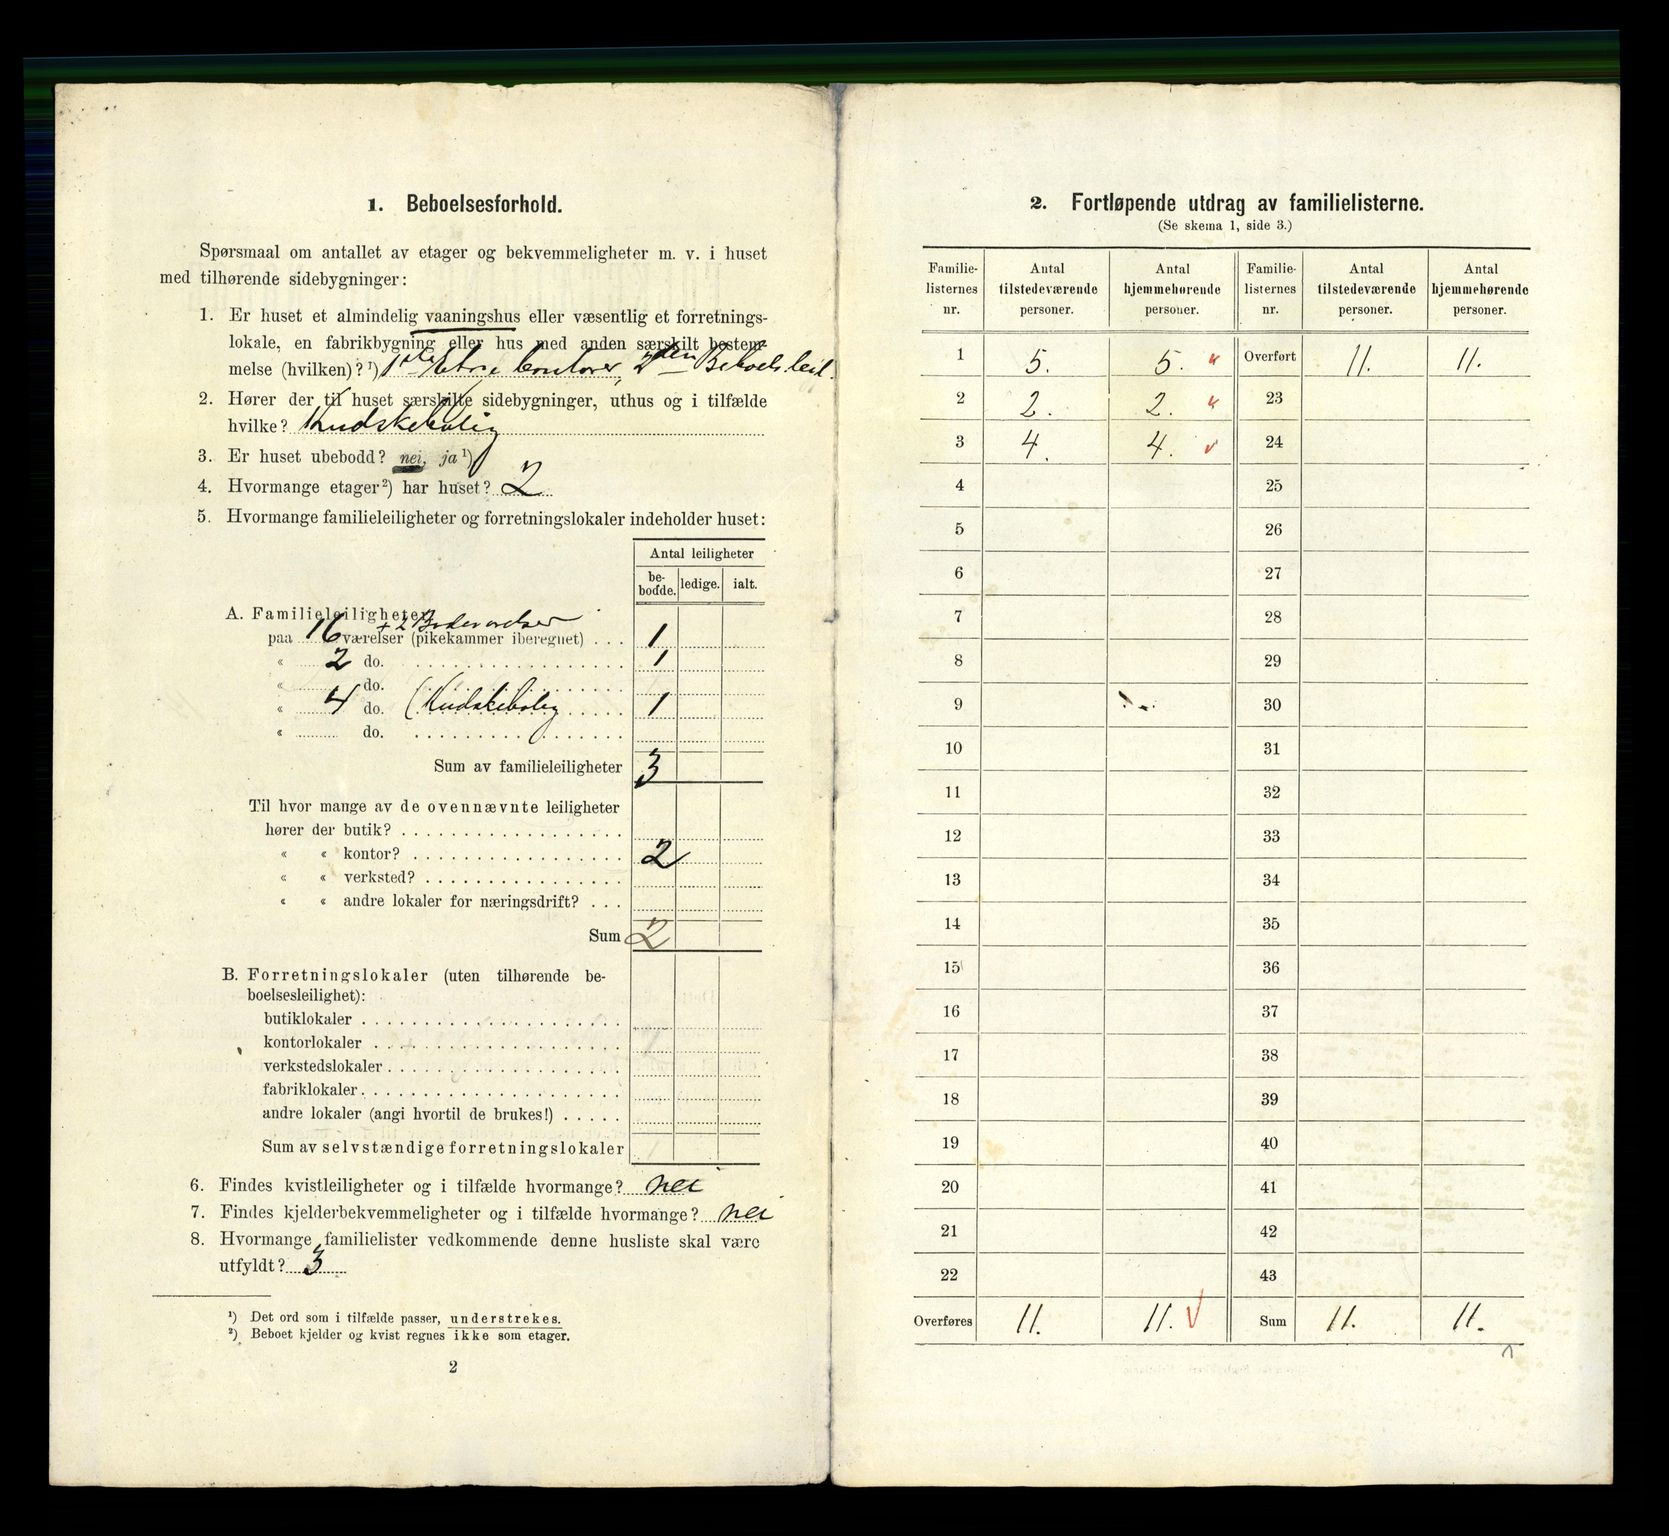 1. Beboelsesforhold.
Spørsmaal om antallet av etager og bekvemmeligheter m. v. i huset
med tilhørende sidebygninger:
1. Er huset et almindelig vaaningshus eller væsentlig et forretnings-
lokale, en fabrikbygning eller hus med anden særskilt bestem-
melse (hvilken)? ¹) 1ste Etage Contorer, 2den Beboels leil.
2. Hører der til huset særskilte sidebygninger, uthus og i tilfælde
hvilke? Kudskebolig
3. Er huset ubebodd? nei, ja ¹)
4. Hvormange etager ²) har huset? 2
5. Hvormange familieleiligheter og forretningslokaler indeholder huset:
Antal leiligheter
be-bodde. ledige. ialt.
A. Familieleiligheter
paa 16 + 2 værelser (pikekammer iberegnet) . . . 1
« 2 do. 1
« do.
« 4 do. (Kudskebolig 1
« do.
Sum av familieleiligheter 3
Til hvor mange av de ovennævnte leiligheter
hører der butik?
« « kontor? 2
« « verksted?
« « andre lokaler for næringsdrift? . . .
Sum 2
B. Forretningslokaler (uten tilhørende be-
boelsesleilighet):
butiklokaler
kontorlokaler
verkstedslokaler
fabriklokaler
andre lokaler (angi hvortil de brukes!)
Sum av selvstændige forretningslokaler
6. Findes kvistleiligheter og i tilfælde hvormange? nei
7. Findes kjelderbekvemmeligheter og i tilfælde hvormange? nei
8. Hvormange familielister vedkommende denne husliste skal være
utfyldt? 3
¹) Det ord som i tilfælde passer, understrekes.
²) Beboet kjelder og kvist regnes ikke som etager.
2
2. Fortløpende utdrag av familielisterne.
(Se skema 1, side 3.)
Familie-listernes nr. Antal tilstedeværende personer. Antal hjemmehørende personer. Familie-listernes nr. Antal tilstedeværende personer. Antal hjemmehørende personer.
1 5. 5. Overført 11. 11.
2 2. 2. 23
3 4. 4. 24
4 25
5 26
6 27
7 28
8 29
9 30
10 31
11 32
12 33
13 34
14 35
15 36
16 37
17 38
18 39
19 40
20 41
21 42
22 43
Overføres 11. 11. Sum 11. 11.